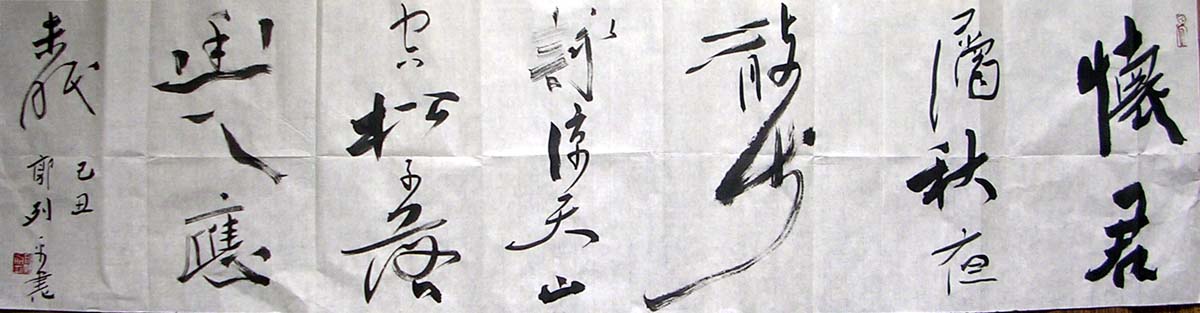 懷君
屬秋夜
散步
詠涼天山
空松子落
幽人應
未眠
己丑
郭列平書